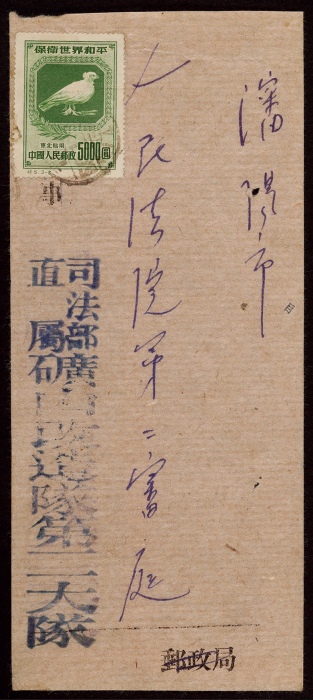 保衛世界和平
東北貼用
中國人民郵政5000圓
瀋陽市
人民法院第二審庭
司法部廣
直屬矿山改造隊第二大隊
郵政局